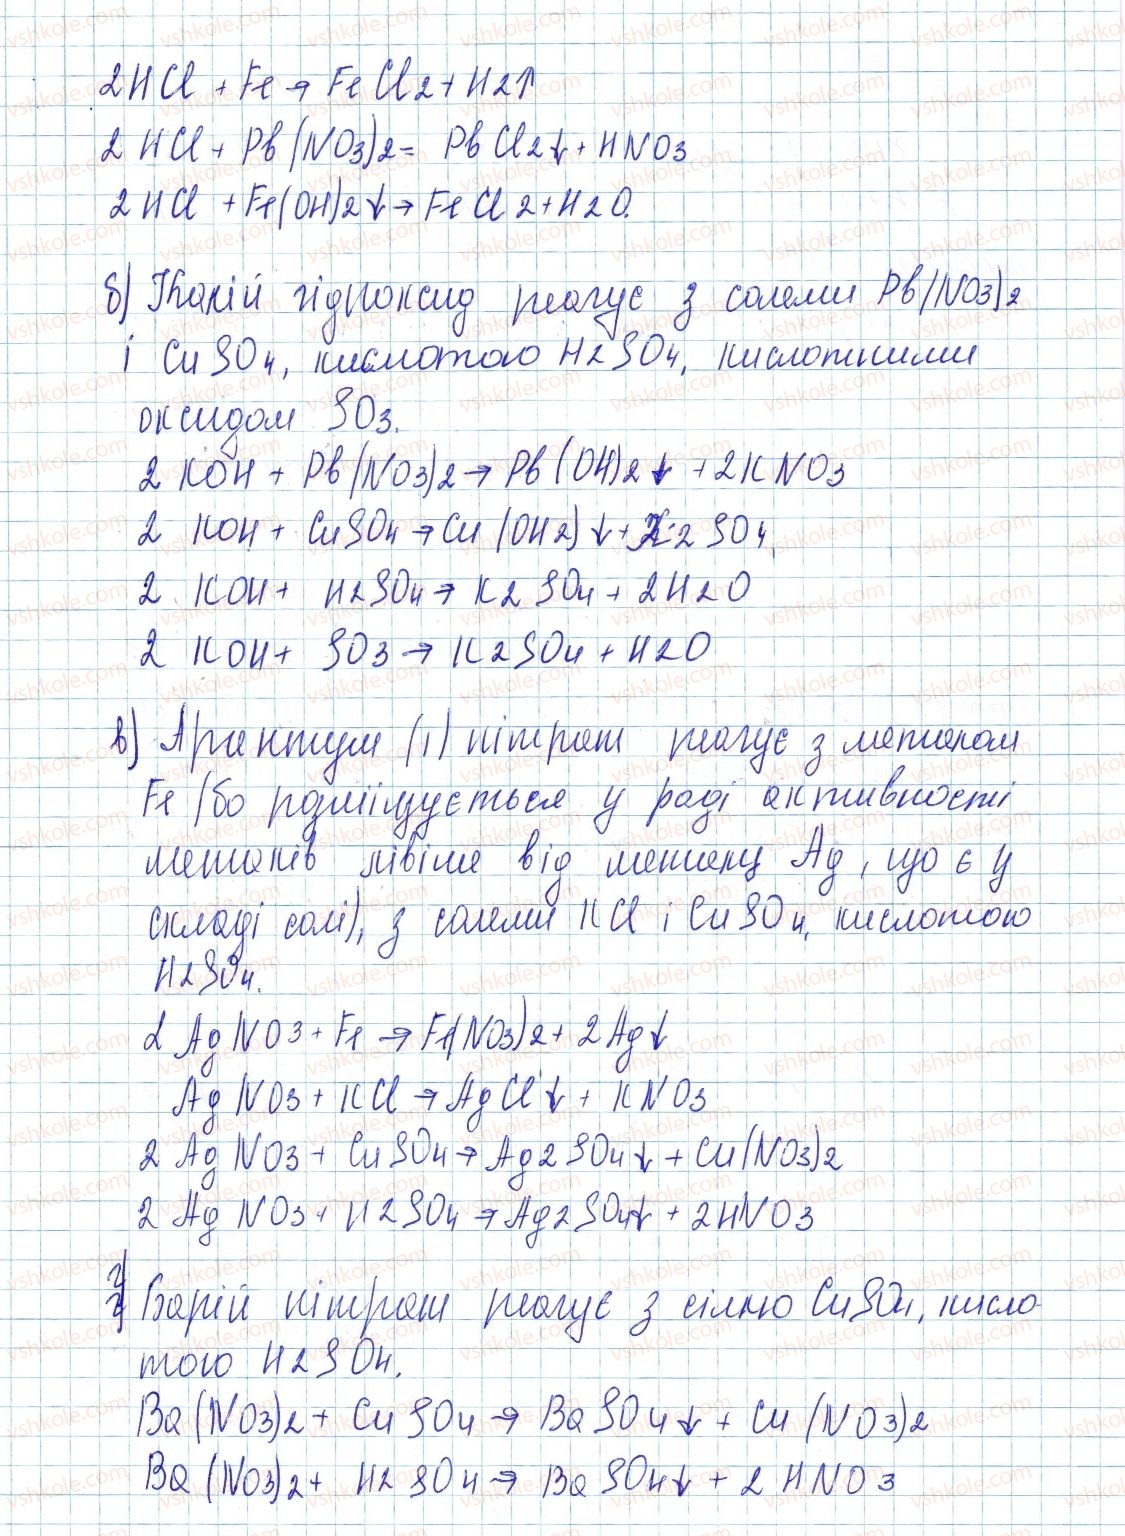 2HCl + Fe → FeCl2 + H2↑
2HCl + Pb(NO3)2 = PbCl2↓ + HNO3
2HCl + Fe(OH)2↓ → FeCl2 + H2O.
б) Калій гідроксид реагує з солями Pb(NO3)2
і CuSO4, кислотою H2SO4, кислотними
оксидом SO3.
2KOH + Pb(NO3)2 → Pb(OH)2↓ + 2KNO3
2 KOH + CuSO4 → Cu(OH2)↓ + K2SO4
2 KOH + H2SO4 → K2SO4 + 2H2O
2 KOH + SO3 → K2SO4 + H2O
в) Аргентум (І) нітрат реагує з металом
Fe (бо розміщується у ряді активності
металів лівіше від металу Ag, що є у
складі солі), з солями KCl і CuSO4, кислотою
H2SO4.
2AgNO3 + Fe → Fe(NO3)2 + 2Ag↓
AgNO3 + KCl → AgCl↓ + KNO3
2AgNO3 + CuSO4 → Ag2SO4↓ + Cu(NO3)2
2AgNO3 + H2SO4 → Ag2SO4↓ + 2HNO3
г) Барій нітрат реагує з сіллю CuSO4, кисло-
тою H2SO4.
Ba(NO3)2 + CuSO4 → BaSO4↓ + Cu(NO3)2
Ba(NO3)2 + H2SO4 → BaSO4↓ + 2HNO3
vshkole.com